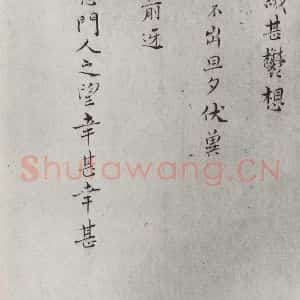 甚鬱想
不出旦夕伏冀
前迓
門人之望幸甚幸甚
Shufawang.CN